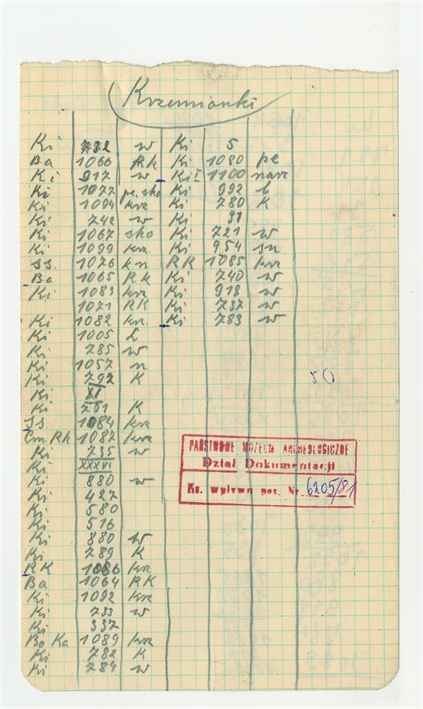 Krzemionki
Ki 782 w Ki 5
Ba 1066 RK Ki 1080 pe
Ki 917 w KiI 1100 narz
Ki 1077 pe. sko Ki 992 b
Ki 1094 krz Ki 780 K
Ki 742 w Ki 91
Ki 1067 sko Ki 721 w
Ki 1099 krz. Ki 954 sn
SS. 1076 kn RK 1085 krz
Ba 1065 RK Ki 740 w
Ki 1083 krz Ki 918 w
1071 RK Ki 737 w
Ki 1082 krz. Ki 783 w
Ki 1005 Ł
Ki 785 w
Ki 1057 n
Ki 792 K
Ki XI
Ki 701 K
SS 1084 krz
Cm RK 1087 krz
Ki 735 w
Ki XXXVI
Ki 880 w
Ki 427
Ki 580
Ki 516
Ki 880 w
Ki 789 K
RK 1086 krz
Ba 1064 RK
Ki 1092 krz
Ki 733 w
Ki 337
Bo Ka 1089 krz
Ki 782 K
Ki 784 w
50
PAŃSTWOWE MUZEUM ARCHEOLOGICZNE
Dział Dokumentacji
Ks. wpływu poz. Nr 6205/81